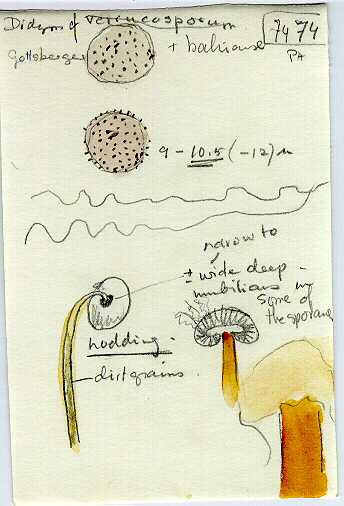 Didym of verrucosporum
Gottsberger + bahiense
7474
PA
9 - 10.5 (-12) µ
narrow to
± wide deep -
umbilicus in
some of
the sporang
nodding.
dirtgrains.